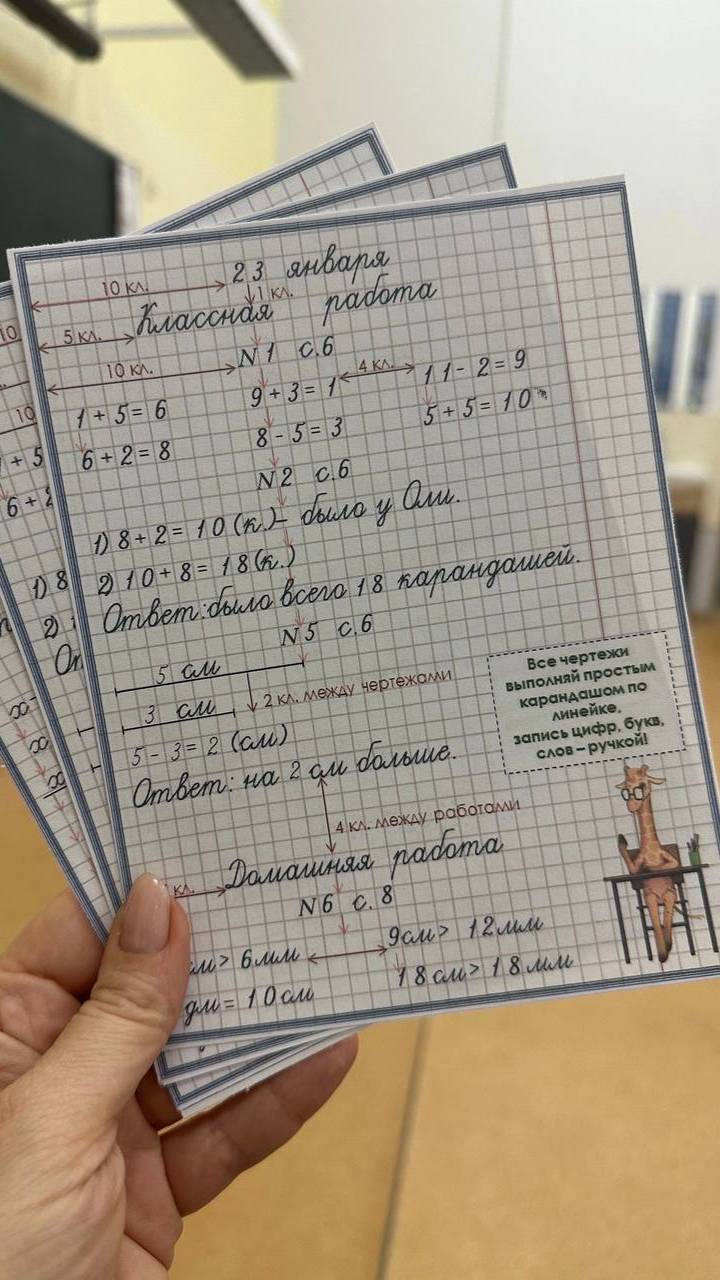 23 января
10 кл.
1 кл.
Классная работа
5 кл.
N1 с.6
10 кл.
4 кл.
1+5=6 9+3=1 11-2=9
6+2=8 8-5=3 5+5=10
N2 с.6
1) 8+2=10(к.)- было у Оли.
2) 10+8=18(к.)
Ответ: было всего 18 карандашей.
N5 с.6
5 см
2 кл. между чертежами
3 см
5-3=2 (см)
Ответ: на 2 см больше.
Все чертежи
выполняй простым
карандашом по
линейке,
запись цифр, букв,
слов – ручкой!
4 кл. между работами
кл.
Домашняя работа
N6 с.8
см> 6мм 9см> 12мм
дм = 10см 18см> 18мм
10
10
+5
6+2
1) 8
2)
От